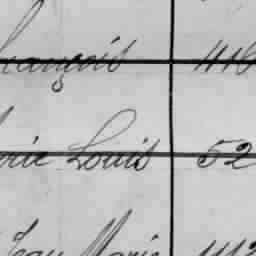 François 416
erie Louis 52
Jean Marie